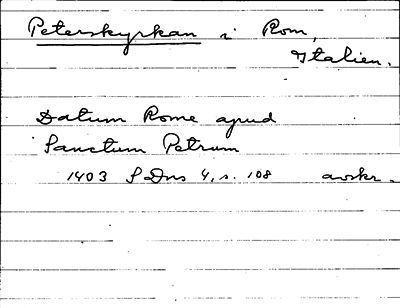 Peterskyrkan i Rom,
Italien.
Datum Rome apud
Sanctum Petrum
1403 SDns 4, s. 108 avskr.